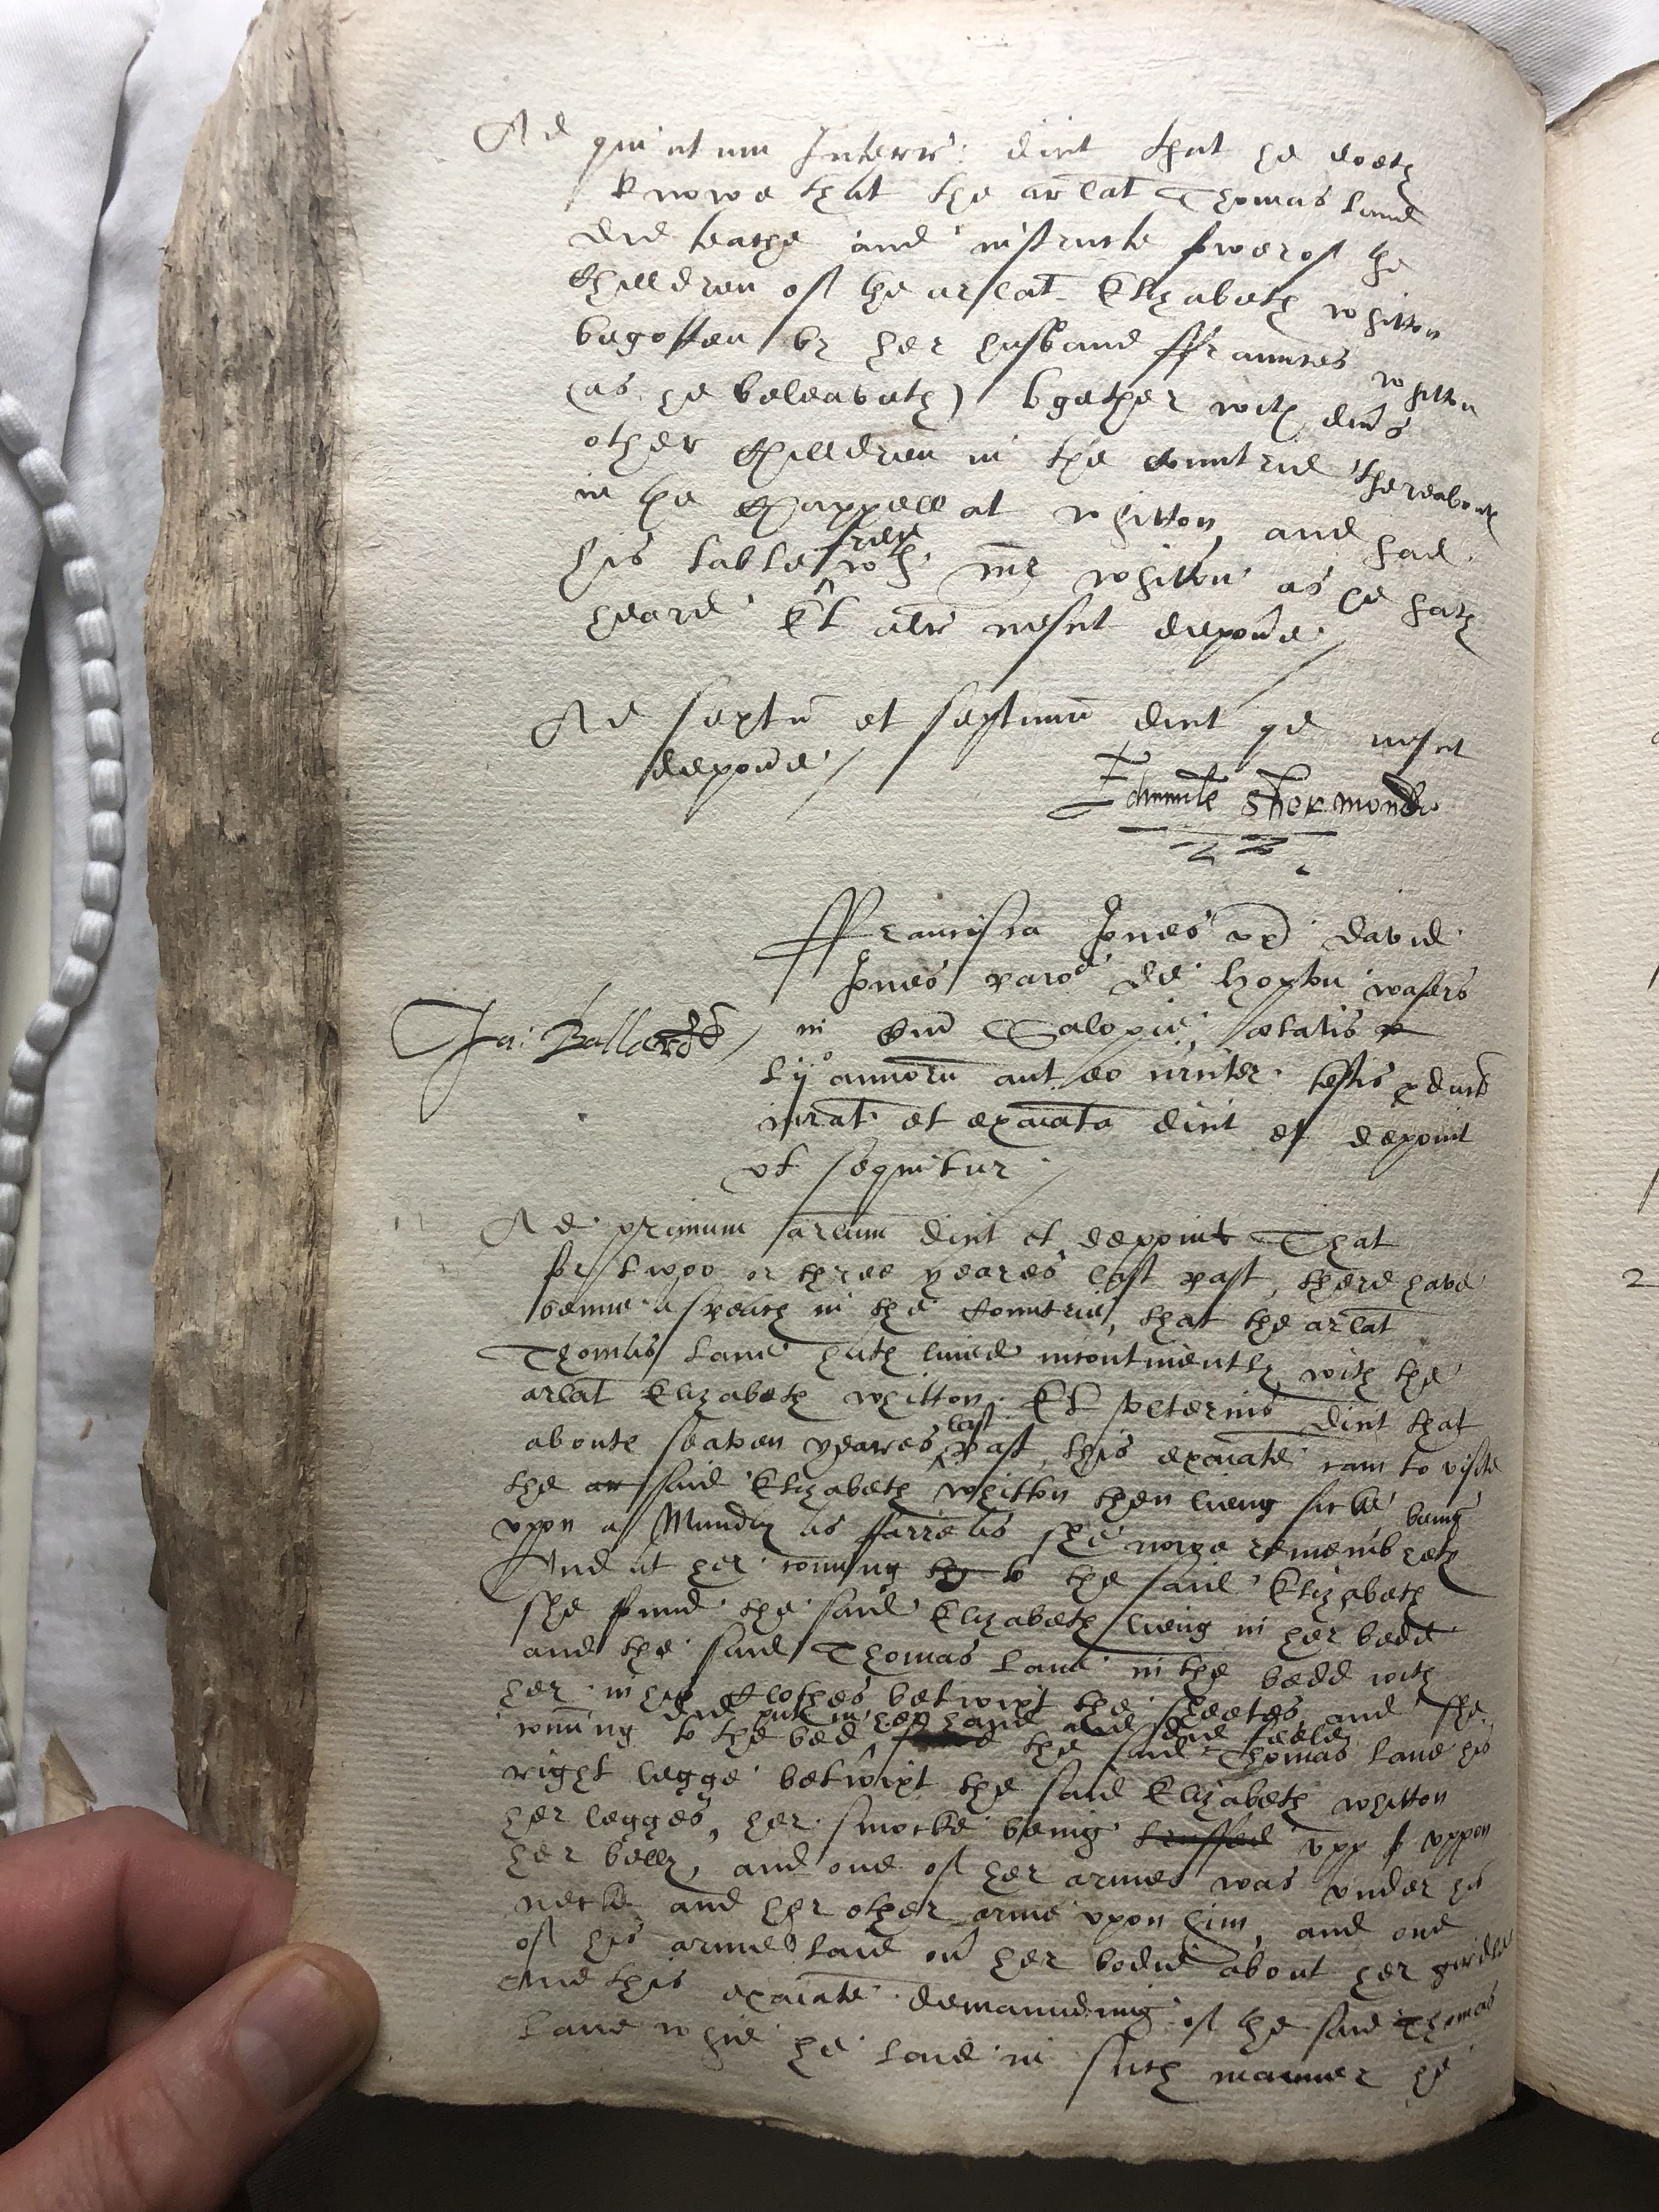 Ad quintum Interr: dicit that he doeth
knowe that the arlat Thomas Lane
did teache and instructe fower of the
Children of the arlat Elizabeth whitton
begotten by her husband ffraunces whitton
(as he beleaveth) together with divers
other Children in the Countrie thereabouts
in the Chappell at whitton, and had
his table free wth mr whitton as he hath
heard Et alr nescit deponere

Ad sextu et septimu dicit qd nescit
deponere
Edmunde Shermonde

ffrancisca Jones ux David
Jones paroe de hopton wafers
in Com Salopie, ætatis
lijo annoru aut eo circiter testis product
iurat et exaiata dicit et deponit
vt sequitur

Ja: Ballarde

Ad primum arlum dicit et deponit That
for twoo or three yeares last past, there have
benne a speach in the Countrie, that the arlat
Thomas Lane hath lived incontinently with the
arlat Elizabeth whitton, Et vlterius dicit that
aboute seaven yeares last past, this exaiate cam to visite
the ar said Elizabeth whitton then lieng sicke being
vpon a Munday as farre as she nowe remembreth
And at her coming thy to the said Elizabeth
she found the said Elizabeth lieng in her bedd
and the said Thomas Lane in the bedd with
her in his Clothes betwixt the sheetes, and she
coming to the bed did put in her hand and did feele the said Thomas Lane his
right legge betwixt the said Elizabeth whitton
her legges, her smocke being trussed vpp vppon
her belly, and one of her armes was vnder his
necke and her other arme vpon him, and one
of his armes laid on her bodie about her girdle
And this exaiate demaunding of the said Thomas
Lane whie he laid in such manner he